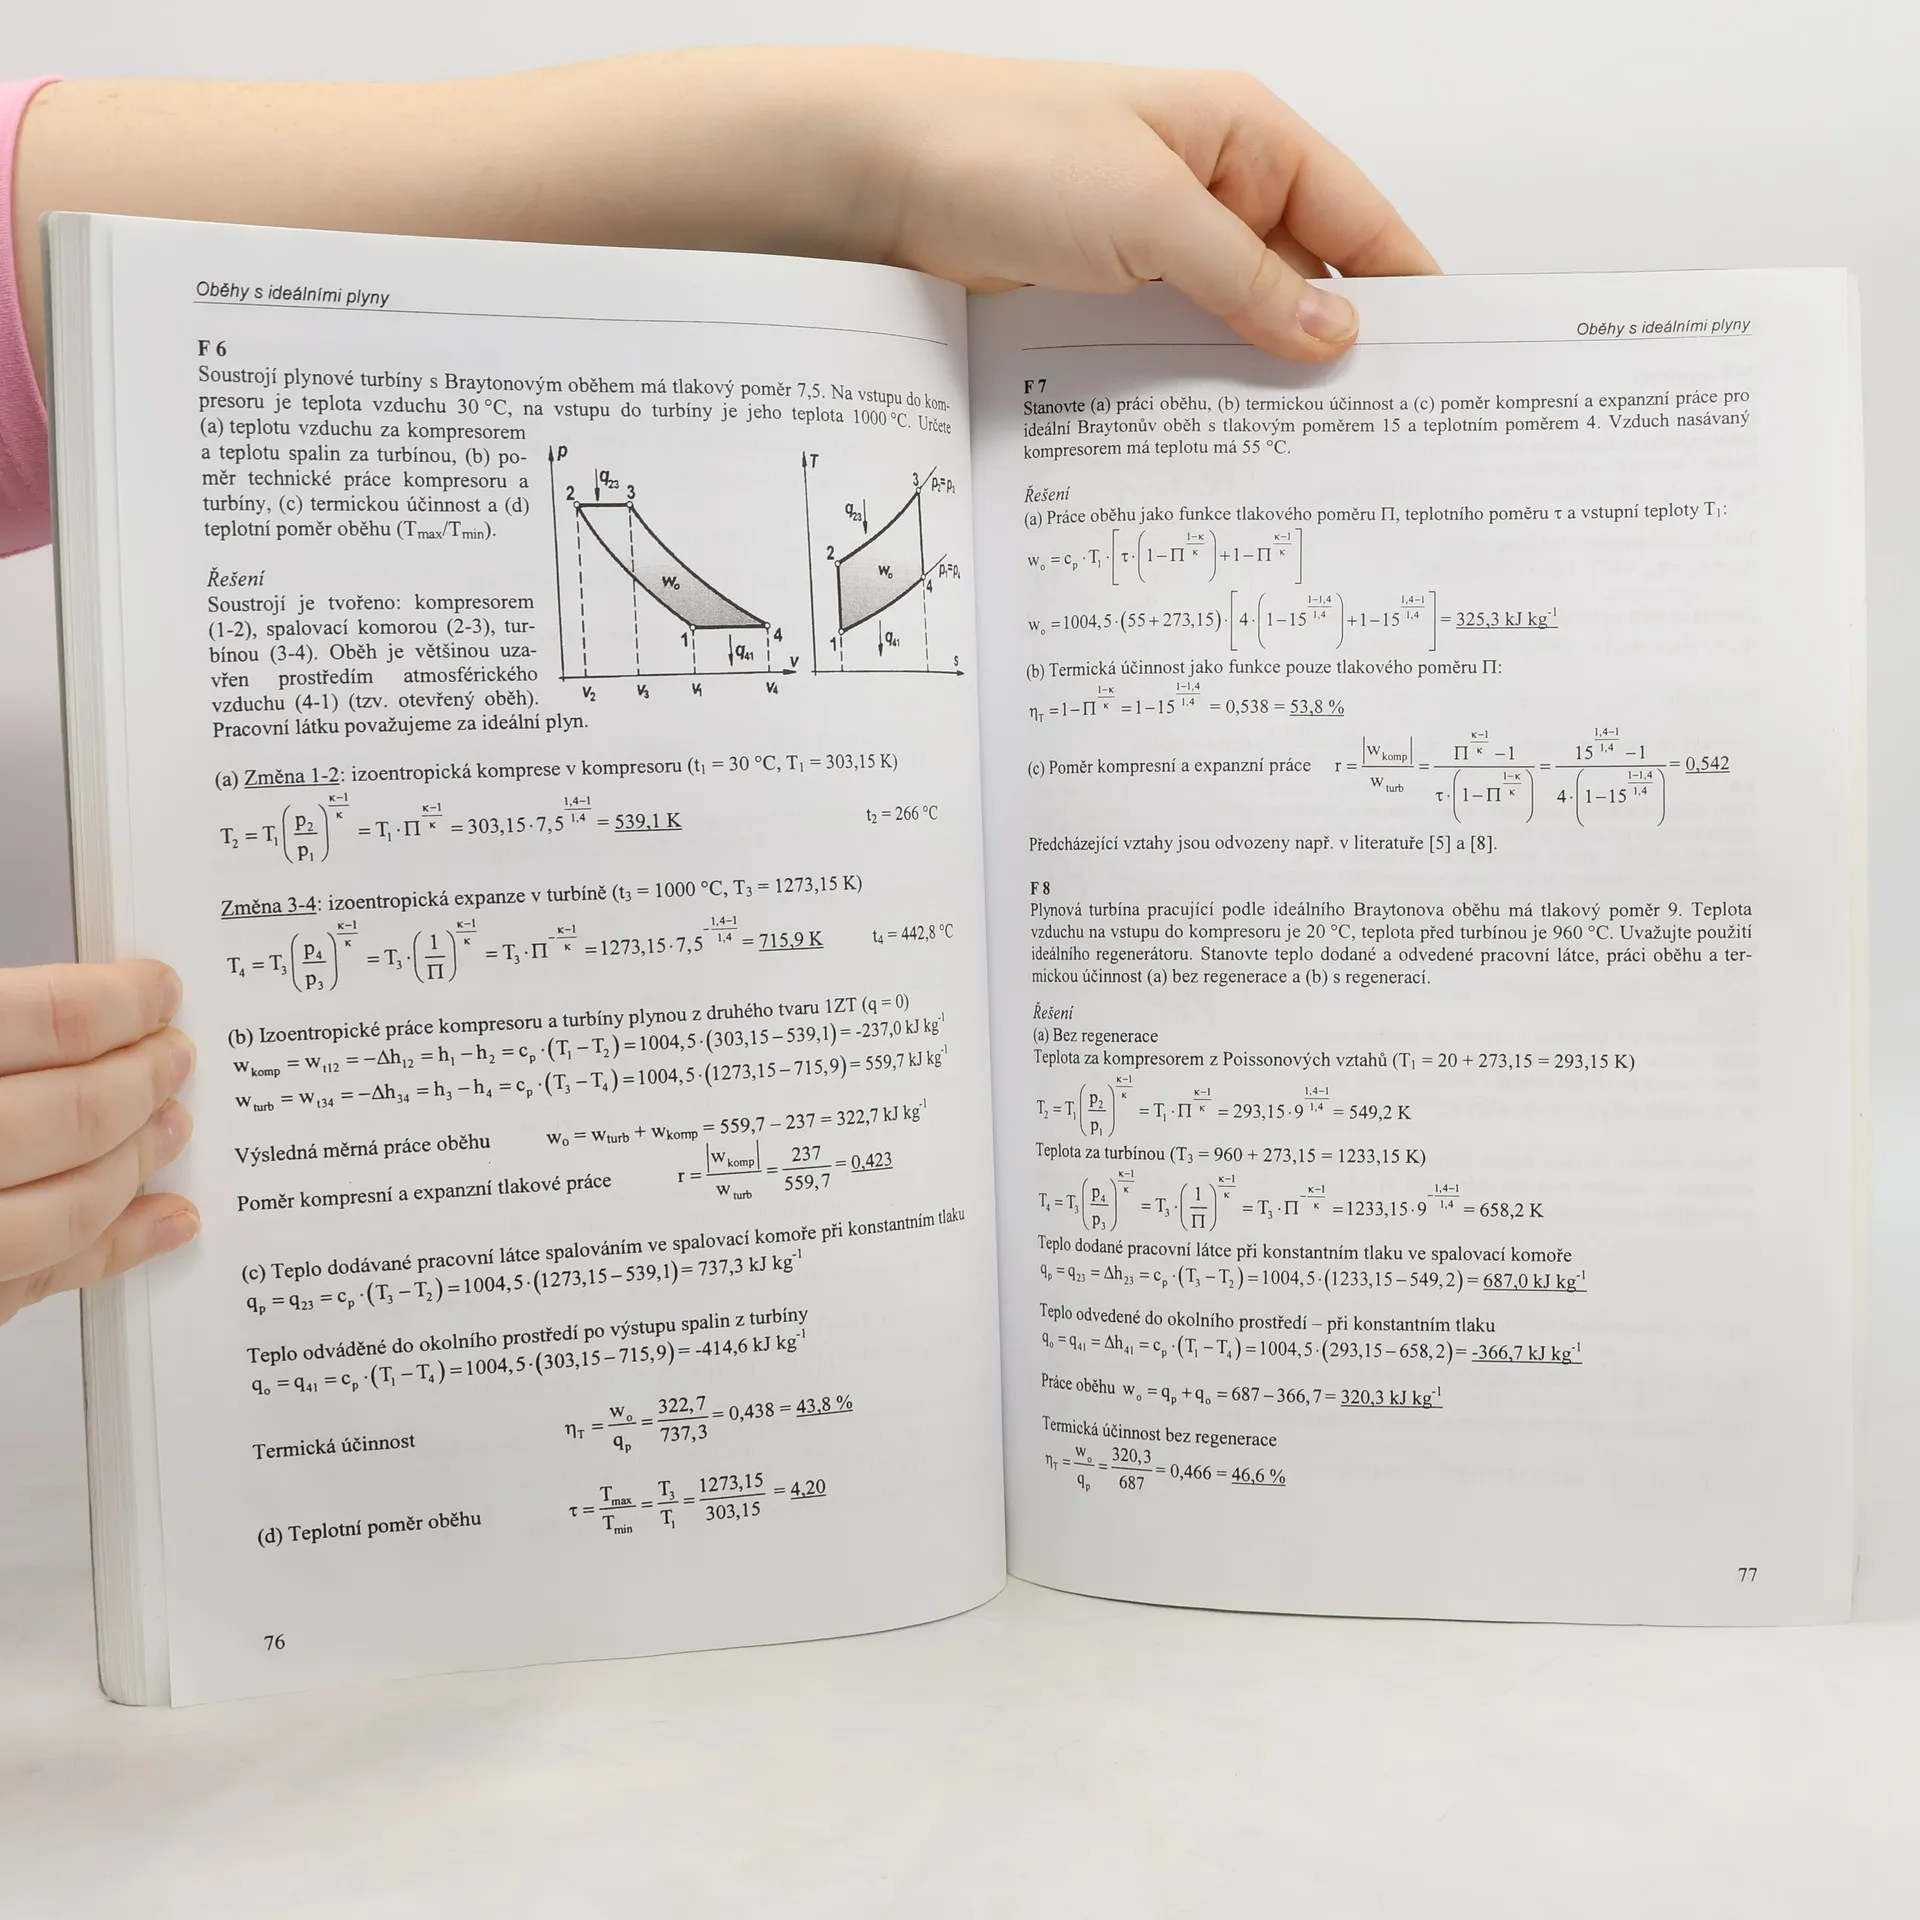 Oběhy s ideálními plyny
F 6
Soustrojí plynové turbíny s Braytonovým oběhem má tlakový poměr 7,5. Na vstupu do kom-
presoru je teplota vzduchu 30 °C, na vstupu do turbíny je jeho teplota 1000 °C. Určete
(a) teplotu vzduchu za kompresorem
a teplotu spalin za turbínou, (b) po-
měr technické práce kompresoru a
turbíny, (c) termickou účinnost a (d)
teplotní poměr oběhu (Tmax/Tmin).
p 2 q23 3 wo 1 q41 4 v
v2 v3 v1 v4
T q23 3 p2=p3 2 wo p1=p4 4 1 q41 s
Řešení
Soustrojí je tvořeno: kompresorem
(1-2), spalovací komorou (2-3), tur-
bínou (3-4). Oběh je většinou uza-
vřen prostředím atmosférického
vzduchu (4-1) (tzv. otevřený oběh).
Pracovní látku považujeme za ideální plyn.
(a) Změna 1-2: izoentropická komprese v kompresoru (t1 = 30 °C, T1 = 303,15 K)
T2 = T1 (p2/p1)^((κ−1)/κ) = T1 · Π^((κ−1)/κ) = 303,15 · 7,5^((1,4−1)/1,4) = 539,1 K t2 = 266 °C
Změna 3-4: izoentropická expanze v turbíně (t3 = 1000 °C, T3 = 1273,15 K)
T4 = T3 (p4/p3)^((κ−1)/κ) = T3 · (1/Π)^((κ−1)/κ) = T3 · Π^(−(κ−1)/κ) = 1273,15 · 7,5^(−(1,4−1)/1,4) = 715,9 K t4 = 442,8 °C
(b) Izoentropické práce kompresoru a turbíny plynou z druhého tvaru 1ZT (q = 0)
wkomp = wt12 = −Δh12 = h1 − h2 = cp · (T1 − T2) = 1004,5 · (303,15 − 539,1) = -237,0 kJ kg-1
wturb = wt34 = −Δh34 = h3 − h4 = cp · (T3 − T4) = 1004,5 · (1273,15 − 715,9) = 559,7 kJ kg-1
Výsledná měrná práce oběhu wo = wturb + wkomp = 559,7 − 237 = 322,7 kJ kg-1
Poměr kompresní a expanzní tlakové práce r = |wkomp|/wturb = 237/559,7 = 0,423
(c) Teplo dodávané pracovní látce spalováním ve spalovací komoře při konstantním tlaku
qp = q23 = cp · (T3 − T2) = 1004,5 · (1273,15 − 539,1) = 737,3 kJ kg-1
Teplo odváděné do okolního prostředí po výstupu spalin z turbíny
qo = q41 = cp · (T1 − T4) = 1004,5 · (303,15 − 715,9) = -414,6 kJ kg-1
Termická účinnost ηT = wo/qp = 322,7/737,3 = 0,438 = 43,8 %
(d) Teplotní poměr oběhu τ = Tmax/Tmin = T3/T1 = 1273,15/303,15 = 4,20
76
Oběhy s ideálními plyny
F 7
Stanovte (a) práci oběhu, (b) termickou účinnost a (c) poměr kompresní a expanzní práce pro
ideální Braytonův oběh s tlakovým poměrem 15 a teplotním poměrem 4. Vzduch nasávaný
kompresorem má teplotu má 55 °C.
Řešení
(a) Práce oběhu jako funkce tlakového poměru Π, teplotního poměru τ a vstupní teploty T1:
wo = cp · T1 · [τ · (1 − Π^((1−κ)/κ)) + 1 − Π^((κ−1)/κ)]
wo = 1004,5 · (55 + 273,15) · [4 · (1 − 15^((1−1,4)/1,4)) + 1 − 15^((1,4−1)/1,4)] = 325,3 kJ kg-1
(b) Termická účinnost jako funkce pouze tlakového poměru Π:
ηT = 1 − Π^((1−κ)/κ) = 1 − 15^((1−1,4)/1,4) = 0,538 = 53,8 %
(c) Poměr kompresní a expanzní práce r = |wkomp|/wturb = (Π^((κ−1)/κ) − 1)/(τ · (1 − Π^((1−κ)/κ))) = (15^((1,4−1)/1,4) − 1)/(4 · (1 − 15^((1−1,4)/1,4))) = 0,542
Předcházející vztahy jsou odvozeny např. v literatuře [5] a [8].
F 8
Plynová turbína pracující podle ideálního Braytonova oběhu má tlakový poměr 9. Teplota
vzduchu na vstupu do kompresoru je 20 °C, teplota před turbínou je 960 °C. Uvažujte použití
ideálního regenerátoru. Stanovte teplo dodané a odvedené pracovní látce, práci oběhu a ter-
mickou účinnost (a) bez regenerace a (b) s regenerací.
Řešení
(a) Bez regenerace
Teplota za kompresorem z Poissonových vztahů (T1 = 20 + 273,15 = 293,15 K)
T2 = T1 (p2/p1)^((κ−1)/κ) = T1 · Π^((κ−1)/κ) = 293,15 · 9^((1,4−1)/1,4) = 549,2 K
Teplota za turbínou (T3 = 960 + 273,15 = 1233,15 K)
T4 = T3 (p4/p3)^((κ−1)/κ) = T3 · (1/Π)^((κ−1)/κ) = T3 · Π^(−(κ−1)/κ) = 1233,15 · 9^(−(1,4−1)/1,4) = 658,2 K
Teplo dodané pracovní látce při konstantním tlaku ve spalovací komoře
qp = q23 = Δh23 = cp · (T3 − T2) = 1004,5 · (1233,15 − 549,2) = 687,0 kJ kg-1
Teplo odvedené do okolního prostředí – při konstantním tlaku
qo = q41 = Δh41 = cp · (T1 − T4) = 1004,5 · (293,15 − 658,2) = -366,7 kJ kg-1
Práce oběhu wo = qp + qo = 687 − 366,7 = 320,3 kJ kg-1
Termická účinnost bez regenerace
ηT = wo/qp = 320,3/687 = 0,466 = 46,6 %
77